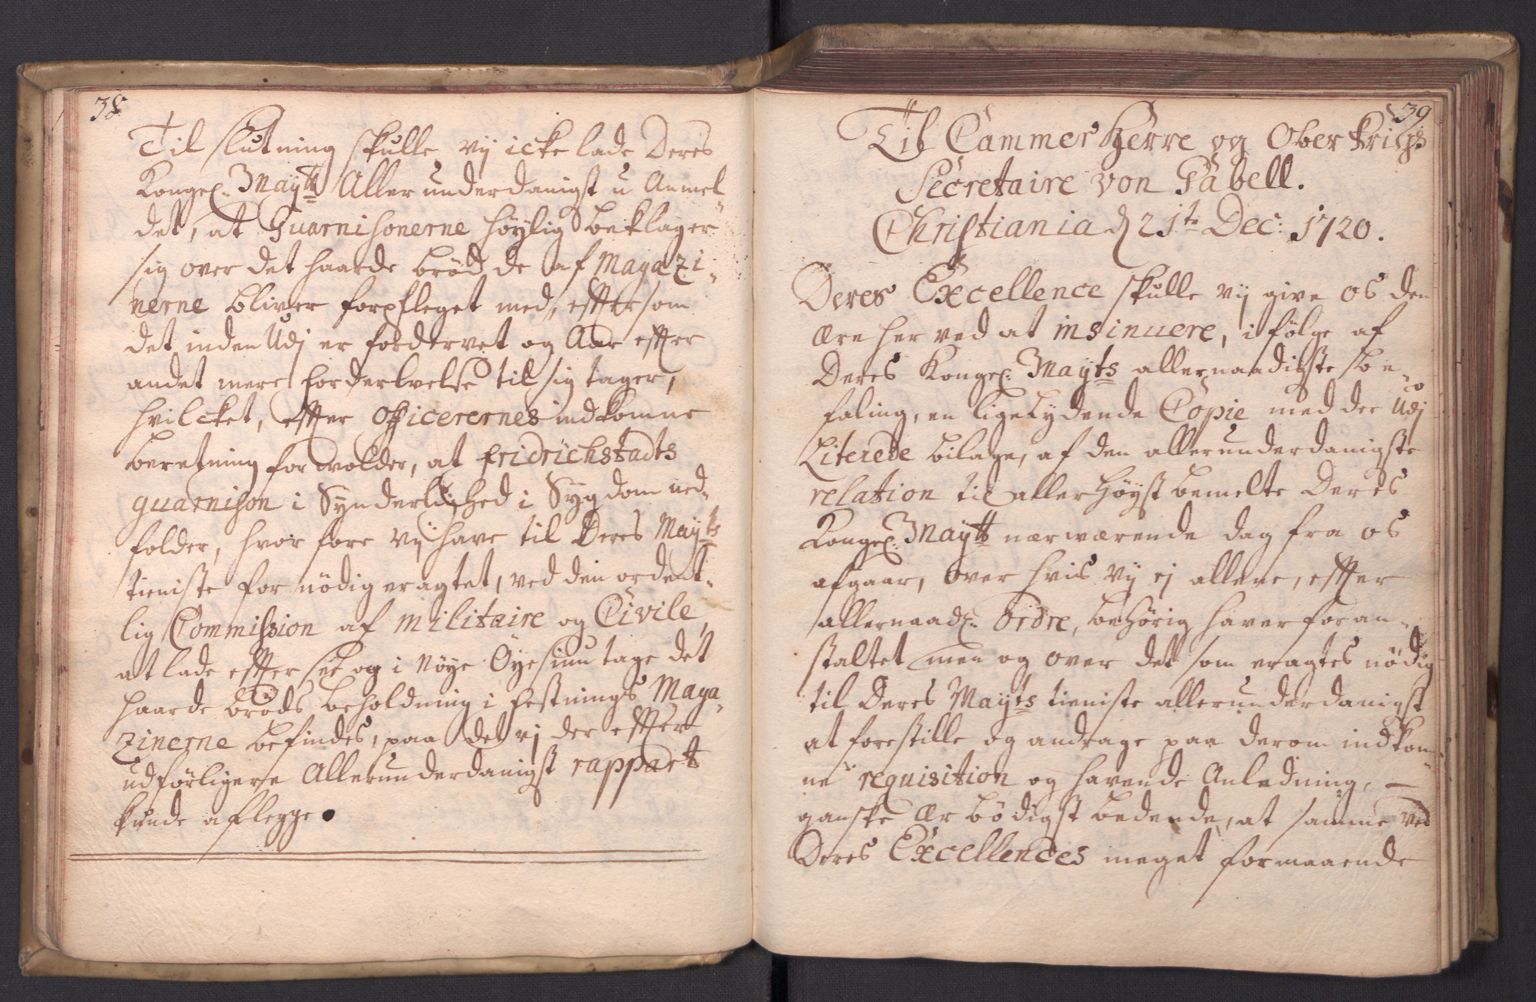 38
Til Slutning skulle vij icke lade Deres
Kongel. Maytt Allerunderdanigst u Anmel-
det, at Guarnisonerne høylig beklager
sig over det haarde brød de af Magazi-
nerne bliver forpfleget med, efftersom
det inden Udj er fordervet og Aar effter
andet mere forderlvelse til sig tager,
hvilcket, effter Officerernes indkomne
beretning forvolder, at Fridrichstadts
guarnison i Synderlighed i Sygdom ned-
folder, hvor fore vij have til Deres Mayts
tieniste for nödig eragtet, ved den ordent-
lig Commission af militaire og Civile,
at lade effter see og i nöye Öyesiun tage det
haarde bröds beholdning i festnings Maga-
zinerne befindes, paa det vj der effter
udförligere Allerunderdanigst rapport
kunde aflegge.
39
Til Cammer Herre og Ober Krigs
Secretaire von Gabell.
Christiania d 21te Dec: 1720.
Deres Excellence skulle vij give os den
ære her ved at insinuere, i følge af
Deres Kongel. Mayts allernaadigste be-
faling, en ligelydende Copie med de Udj
Literede bilage, af den allerunderdanigste
relation til allerhøyst bemelte Deres
Kongel. Maytt nærværende dag fra os
afgaar, over hvis vij ej allene, effter
allernaadl. Ordre, behørig haver foran-
staltet men og over det som eragtes nödig
til Deres Mayts tieniste allerunderdanigst
at forestille og andrage paa derom indkom-
ne requisition og havende Anledning, —
ganske ærbödigst bedende, at samme ved
Deres Excellences meget formaaende